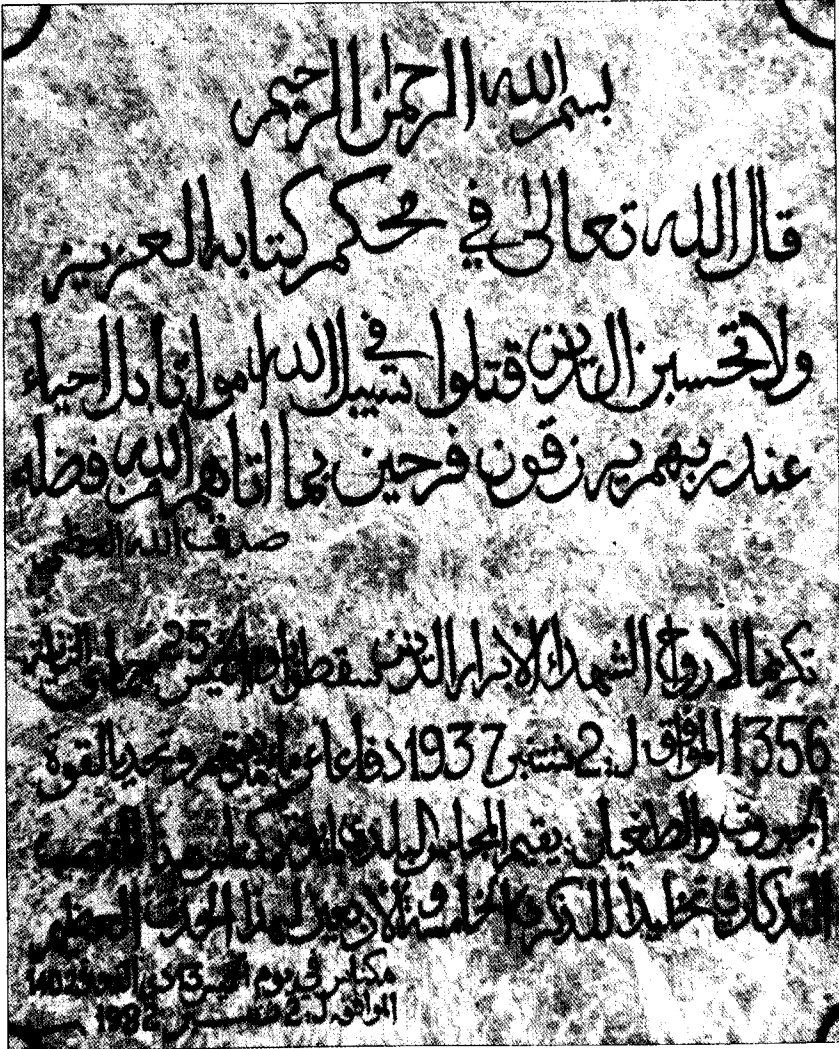 بسم الله الرحمن الرحيم
قال الله تعالى في محكم كتابه العزيز
ولا تحسبن الذين قتلوا في سبيل الله امواتا بل احياء
عند ربهم يرزقون فرحين بما اتاهم الله فضله
صدق الله العظيم
تكريما لارواح الشهداء الابرار الذين سقطوا يوم الخميس 25 جمادى الثانية
1356 الموافق ل 2 شتنبر 1937 دفاعا عن وتحديا لقوة
الجبروت والطغيان يقيم المجلس البلدي لمدينة مكناس هذا النصب
التذكاري تخليدا للذكرى الخامسة والاربعين لهذا الحدث العظيم
مكناس في يوم 13 ذي القعدة 1402
الموافق ل 2 شتنبر 1982